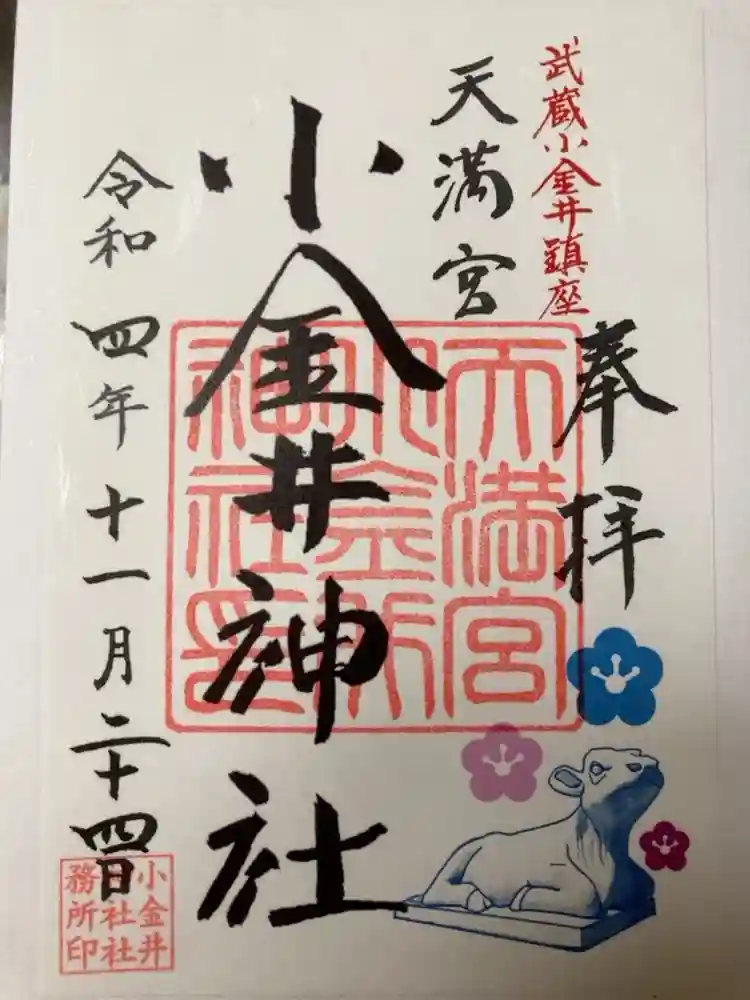 武蔵小金井鎮座
奉拝
天満宮
小金井神社
令和四年十一月二十四日
天満宮
小金井
神社印
小金井
神社社
務所印